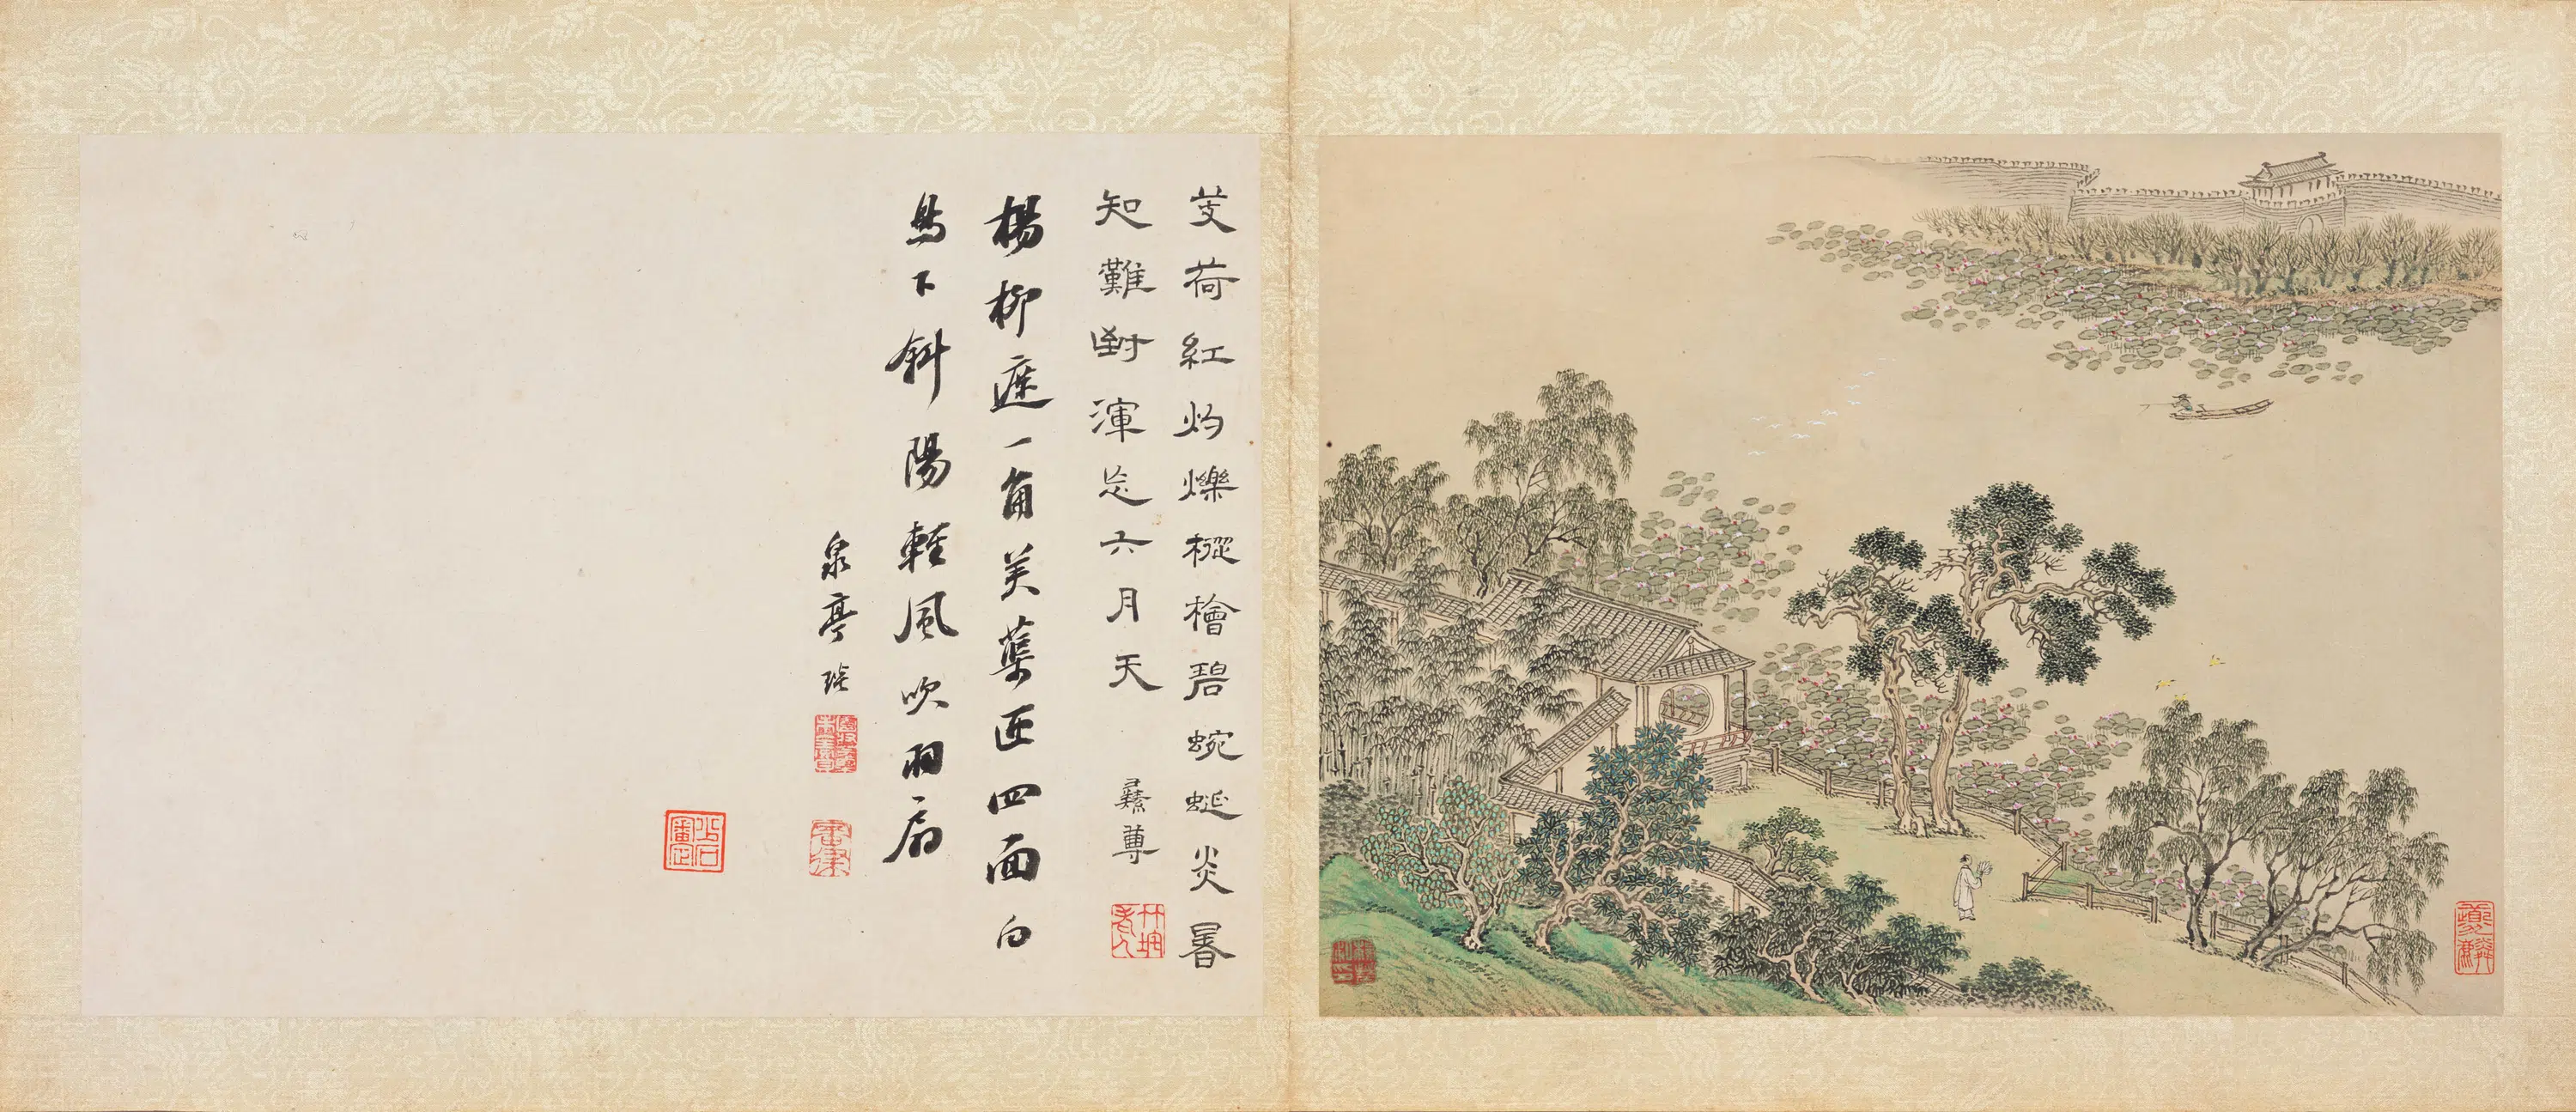 芰荷紅灼爍樅檜碧蜿蜒炎暑
知難渾忘六月天 彝尊
竹垞老人
楊柳遮一角芙蕖匝四面白
鳥下斜陽輕風吹羽扇
泉亭